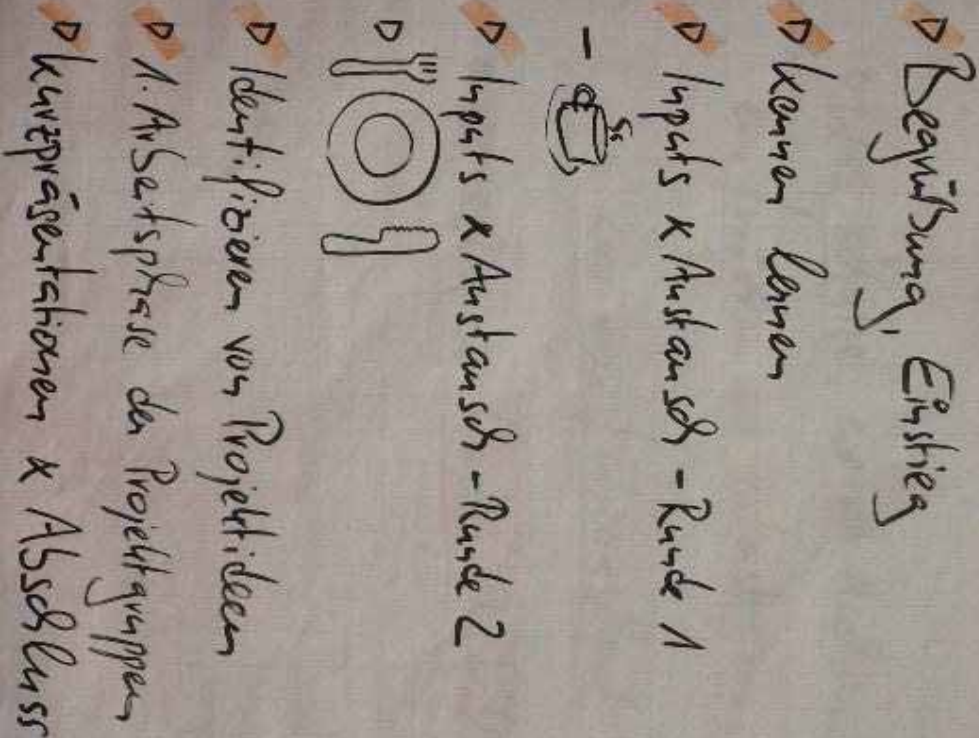 Begrüßung, Einstieg
kennen lernen
Inputs & Austausch - Runde 1
Inputs & Austausch - Runde 2
Identifizieren von Projektideen
1. Arbeitsphase der Projektgruppen
Kurzpräsentationen & Abschluss